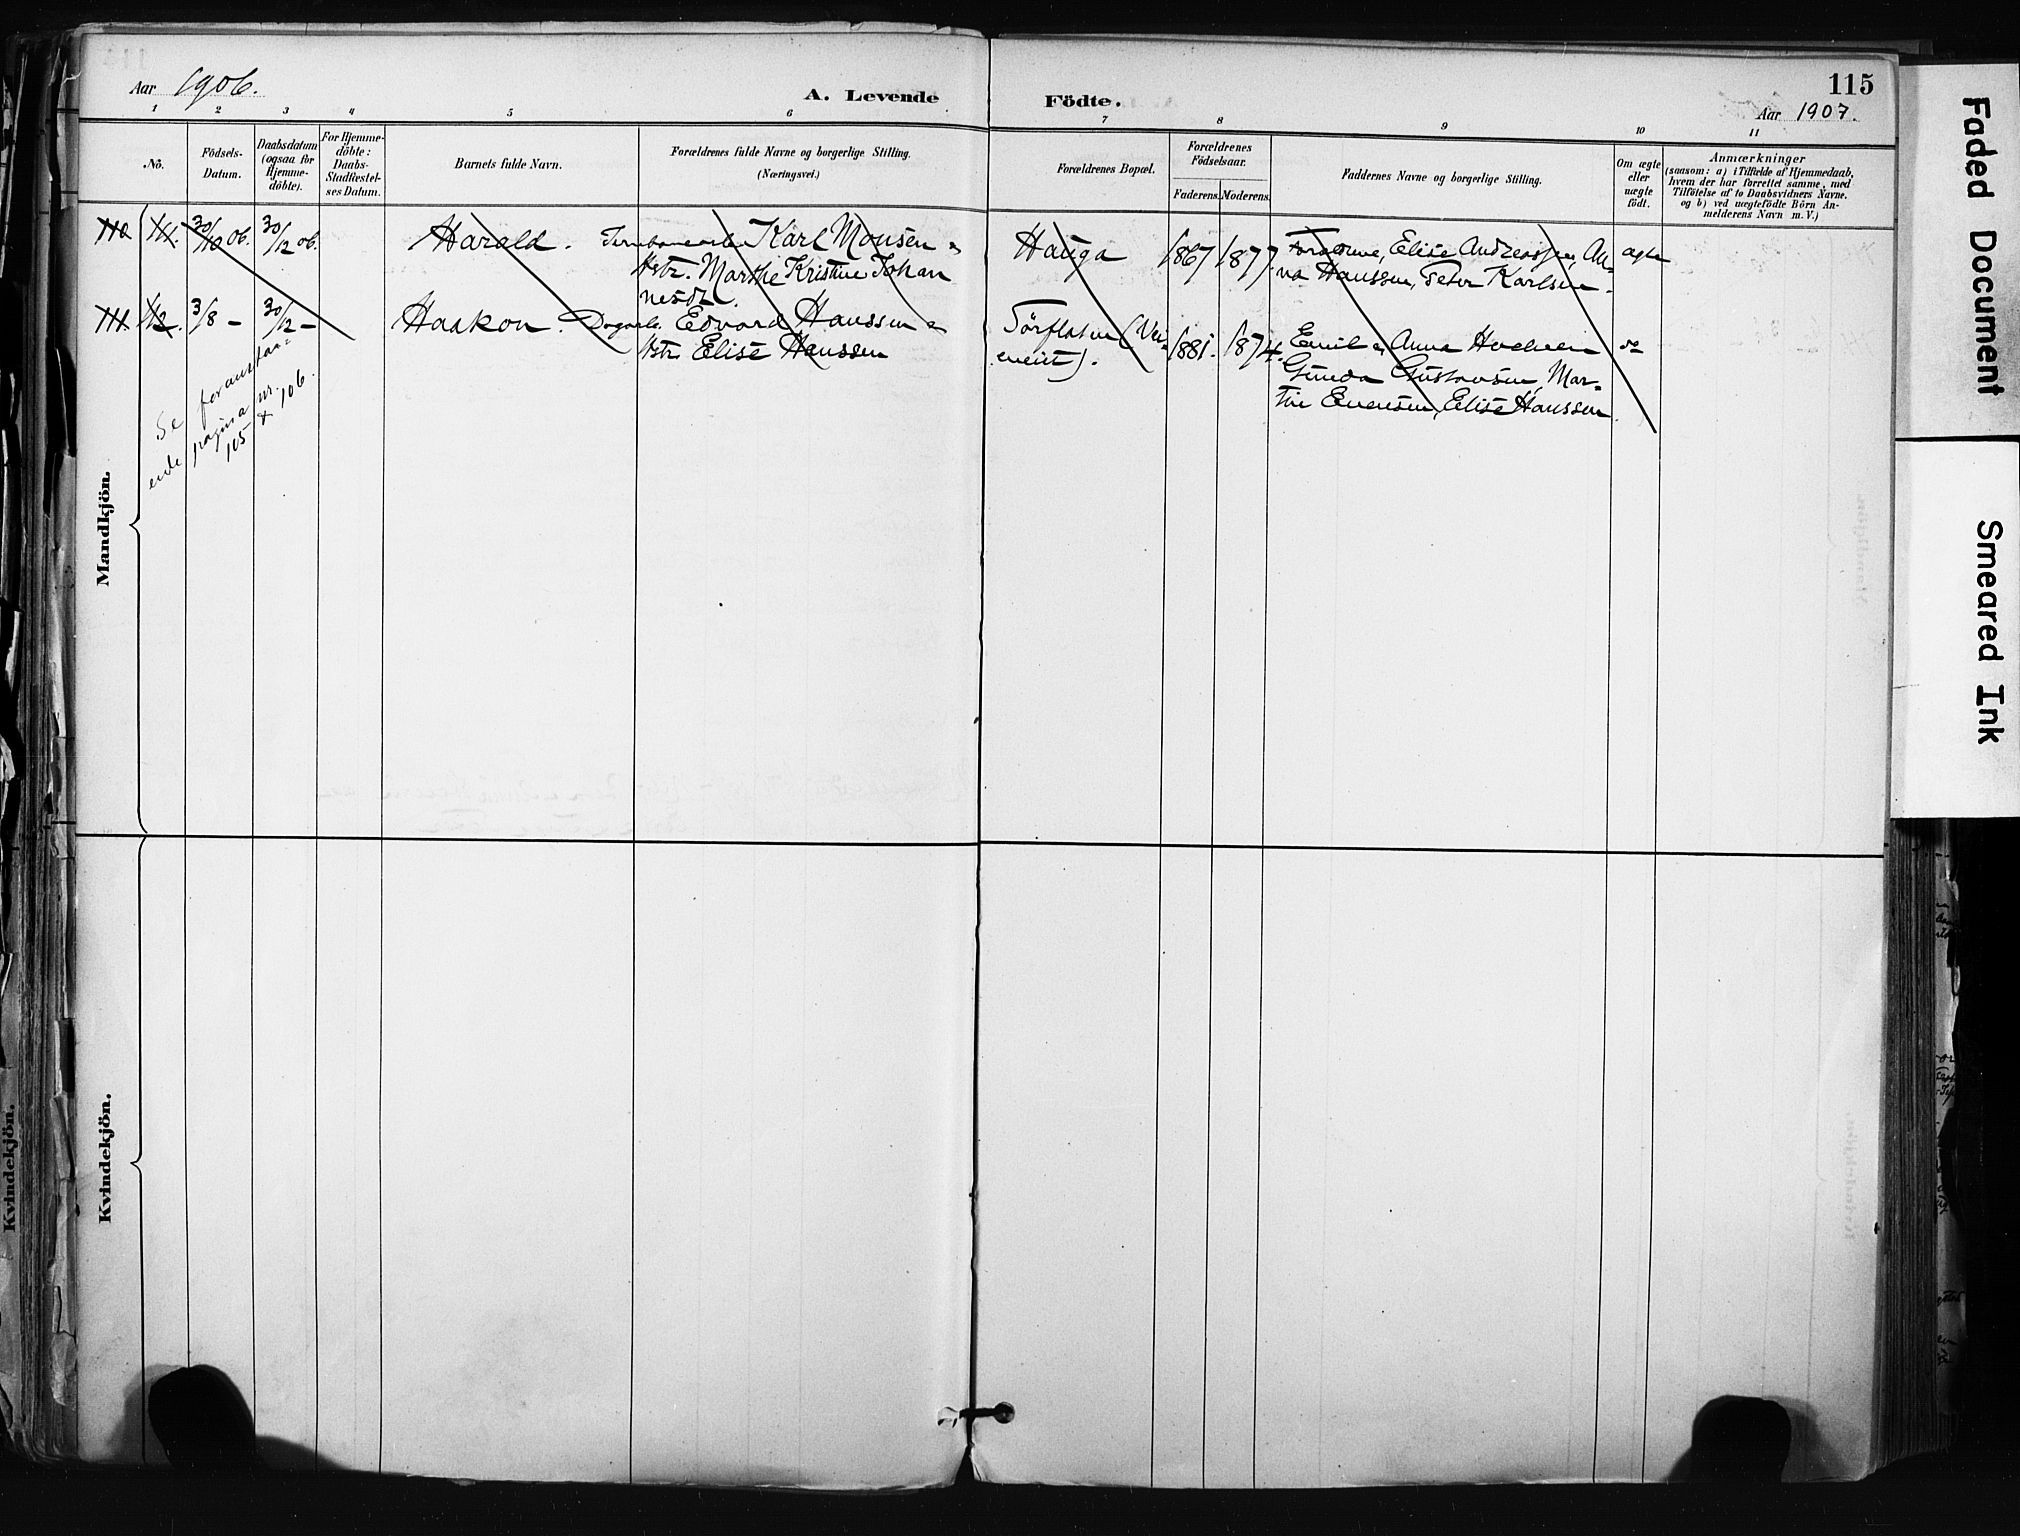 115
Aar 1906.
A. Levende
Födte.
Aar 1907.
1 2 3 4 5 6 7 8 9 10 11
No.
Födsels-
Datum.
Daabsdatum
(ogsaa for
Hjemme-
döbte).
For Hjemme-
döbte:
Daabs-
Stadfæstel-
ses Datum.
Barnets fulde Navn.
Forældrenes fulde Navne og borgerlige Stilling.
(Næringsvei.)
Forældrenes Bopæl.
Forældrenes
Födselsaar.
Faderens. Moderens.
Faddernes Navne og borgerlige Stilling.
Om ægte
eller
uægte
födt.
Anmærkninger
(saasom: a) i Tilfælde af Hjemmedaab,
hvem der har forrettet samme, med
Tilföielse af to Daabsvidners Navne.
og b) ved uægtefödte Börn An-
melderens Navn m. V.)
110 111. 30/10 06. 30/12 06. Harald. Karl Monsen
Hstr. Marthe Kristine Johan
nesdt.
Hauga 1867 1877. Foraldrene, Elise Andreassen, An-
na Hanssen, Peter Karlsen. ægte
111 112. 3/8 - 30/12 - Haakon. Dagarb. Edvard Hanssen
Hstr. Elise Hanssen
1881. 1874. Emil Anna
Gustavsen Mar-
tin Evensen, Elise Hanssen. do
Se foranstaa-
ende pagina nr.
105 & 106.
Mandkjön.
Kvindekjön.
Kvindekjön.
Faded Document
Smeared Ink